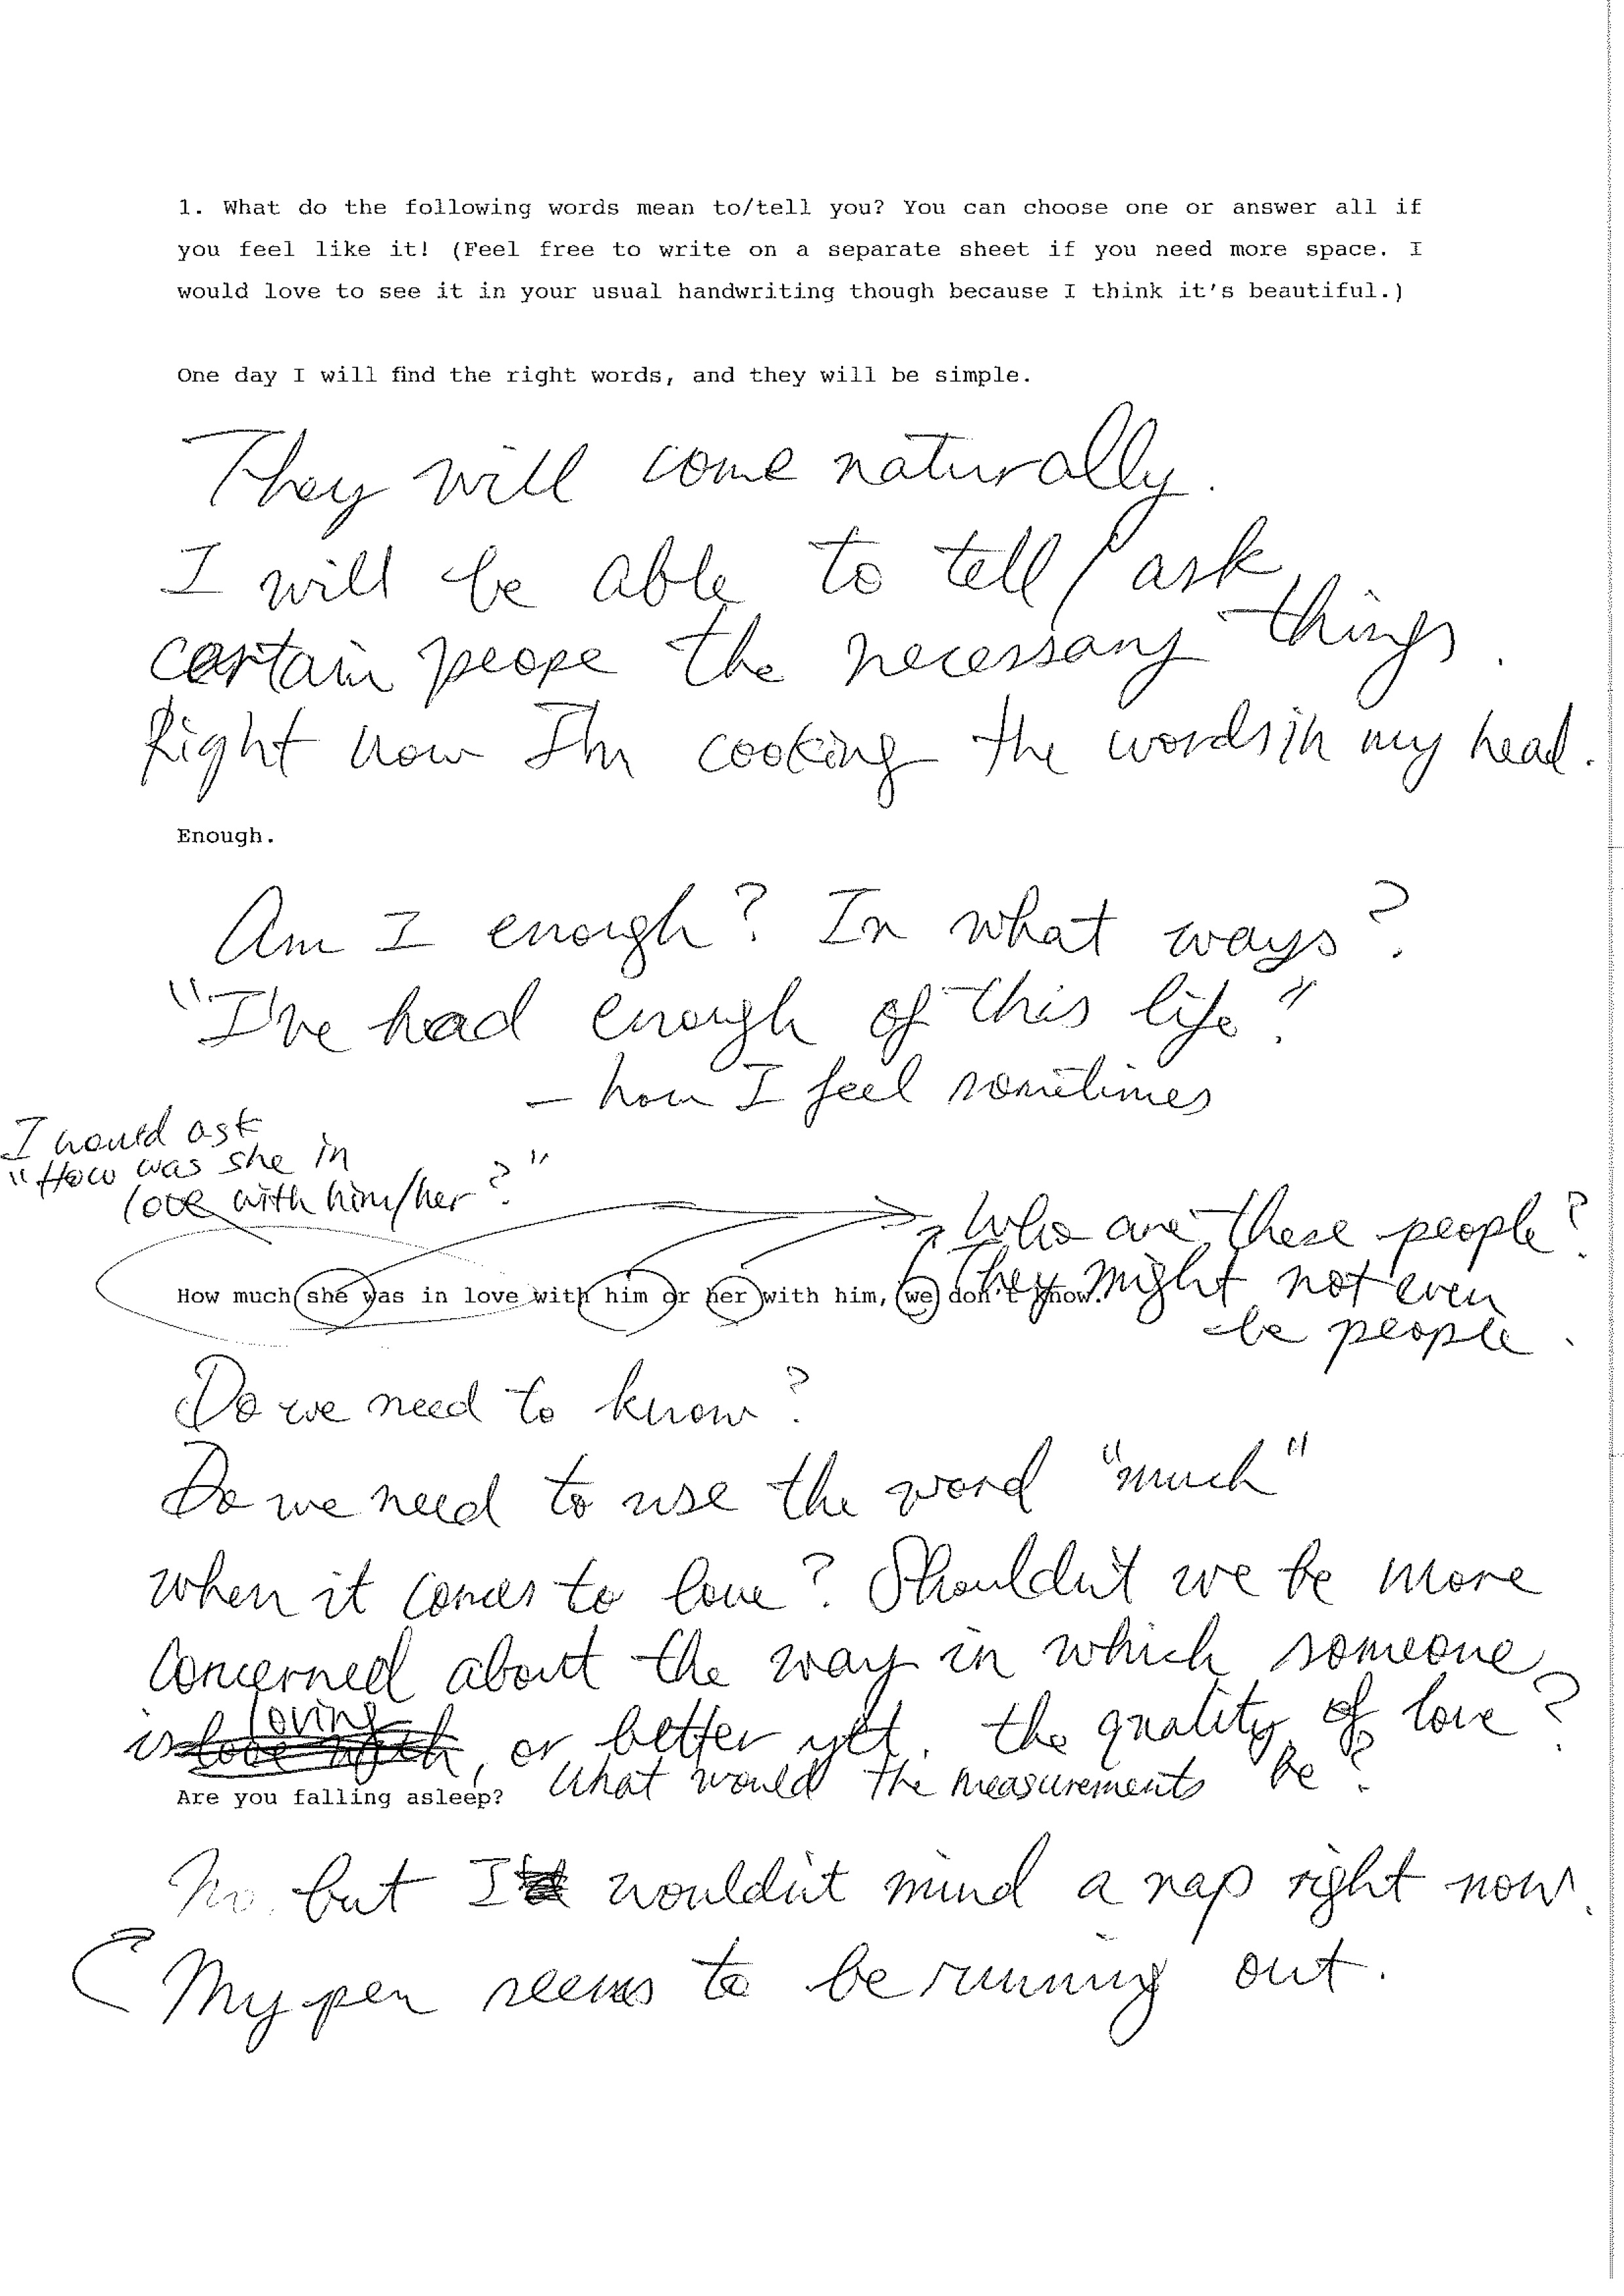 1. What do the following words mean to/tell you? You can choose one or answer all if
you feel like it! (Feel free to write on a separate sheet if you need more space. I
would love to see it in your usual handwriting though because I think it's beautiful.)
One day I will find the right words, and they will be simple.
They will come naturally.
I will be able to tell / ask
certain peope the necessary things.
Right now I'm cooking the words in my head.
Enough.
Am I enough? In what ways?
"I've had enough of this life."
— how I feel sometimes
I would ask
"How was she in
love with him/her?"
Who are these people?
They might not even
be people.
How much she was in love with him or her with him, we don't know.
Do we need to know?
Do we need to use the word "much"
when it comes to love? Shouldn't we be more
concerned about the way in which someone
is loving, or better yet, the quality of love?
What would the measurements be?
Are you falling asleep?
No, but I wouldn't mind a nap right now.
My pen seems to be running out.